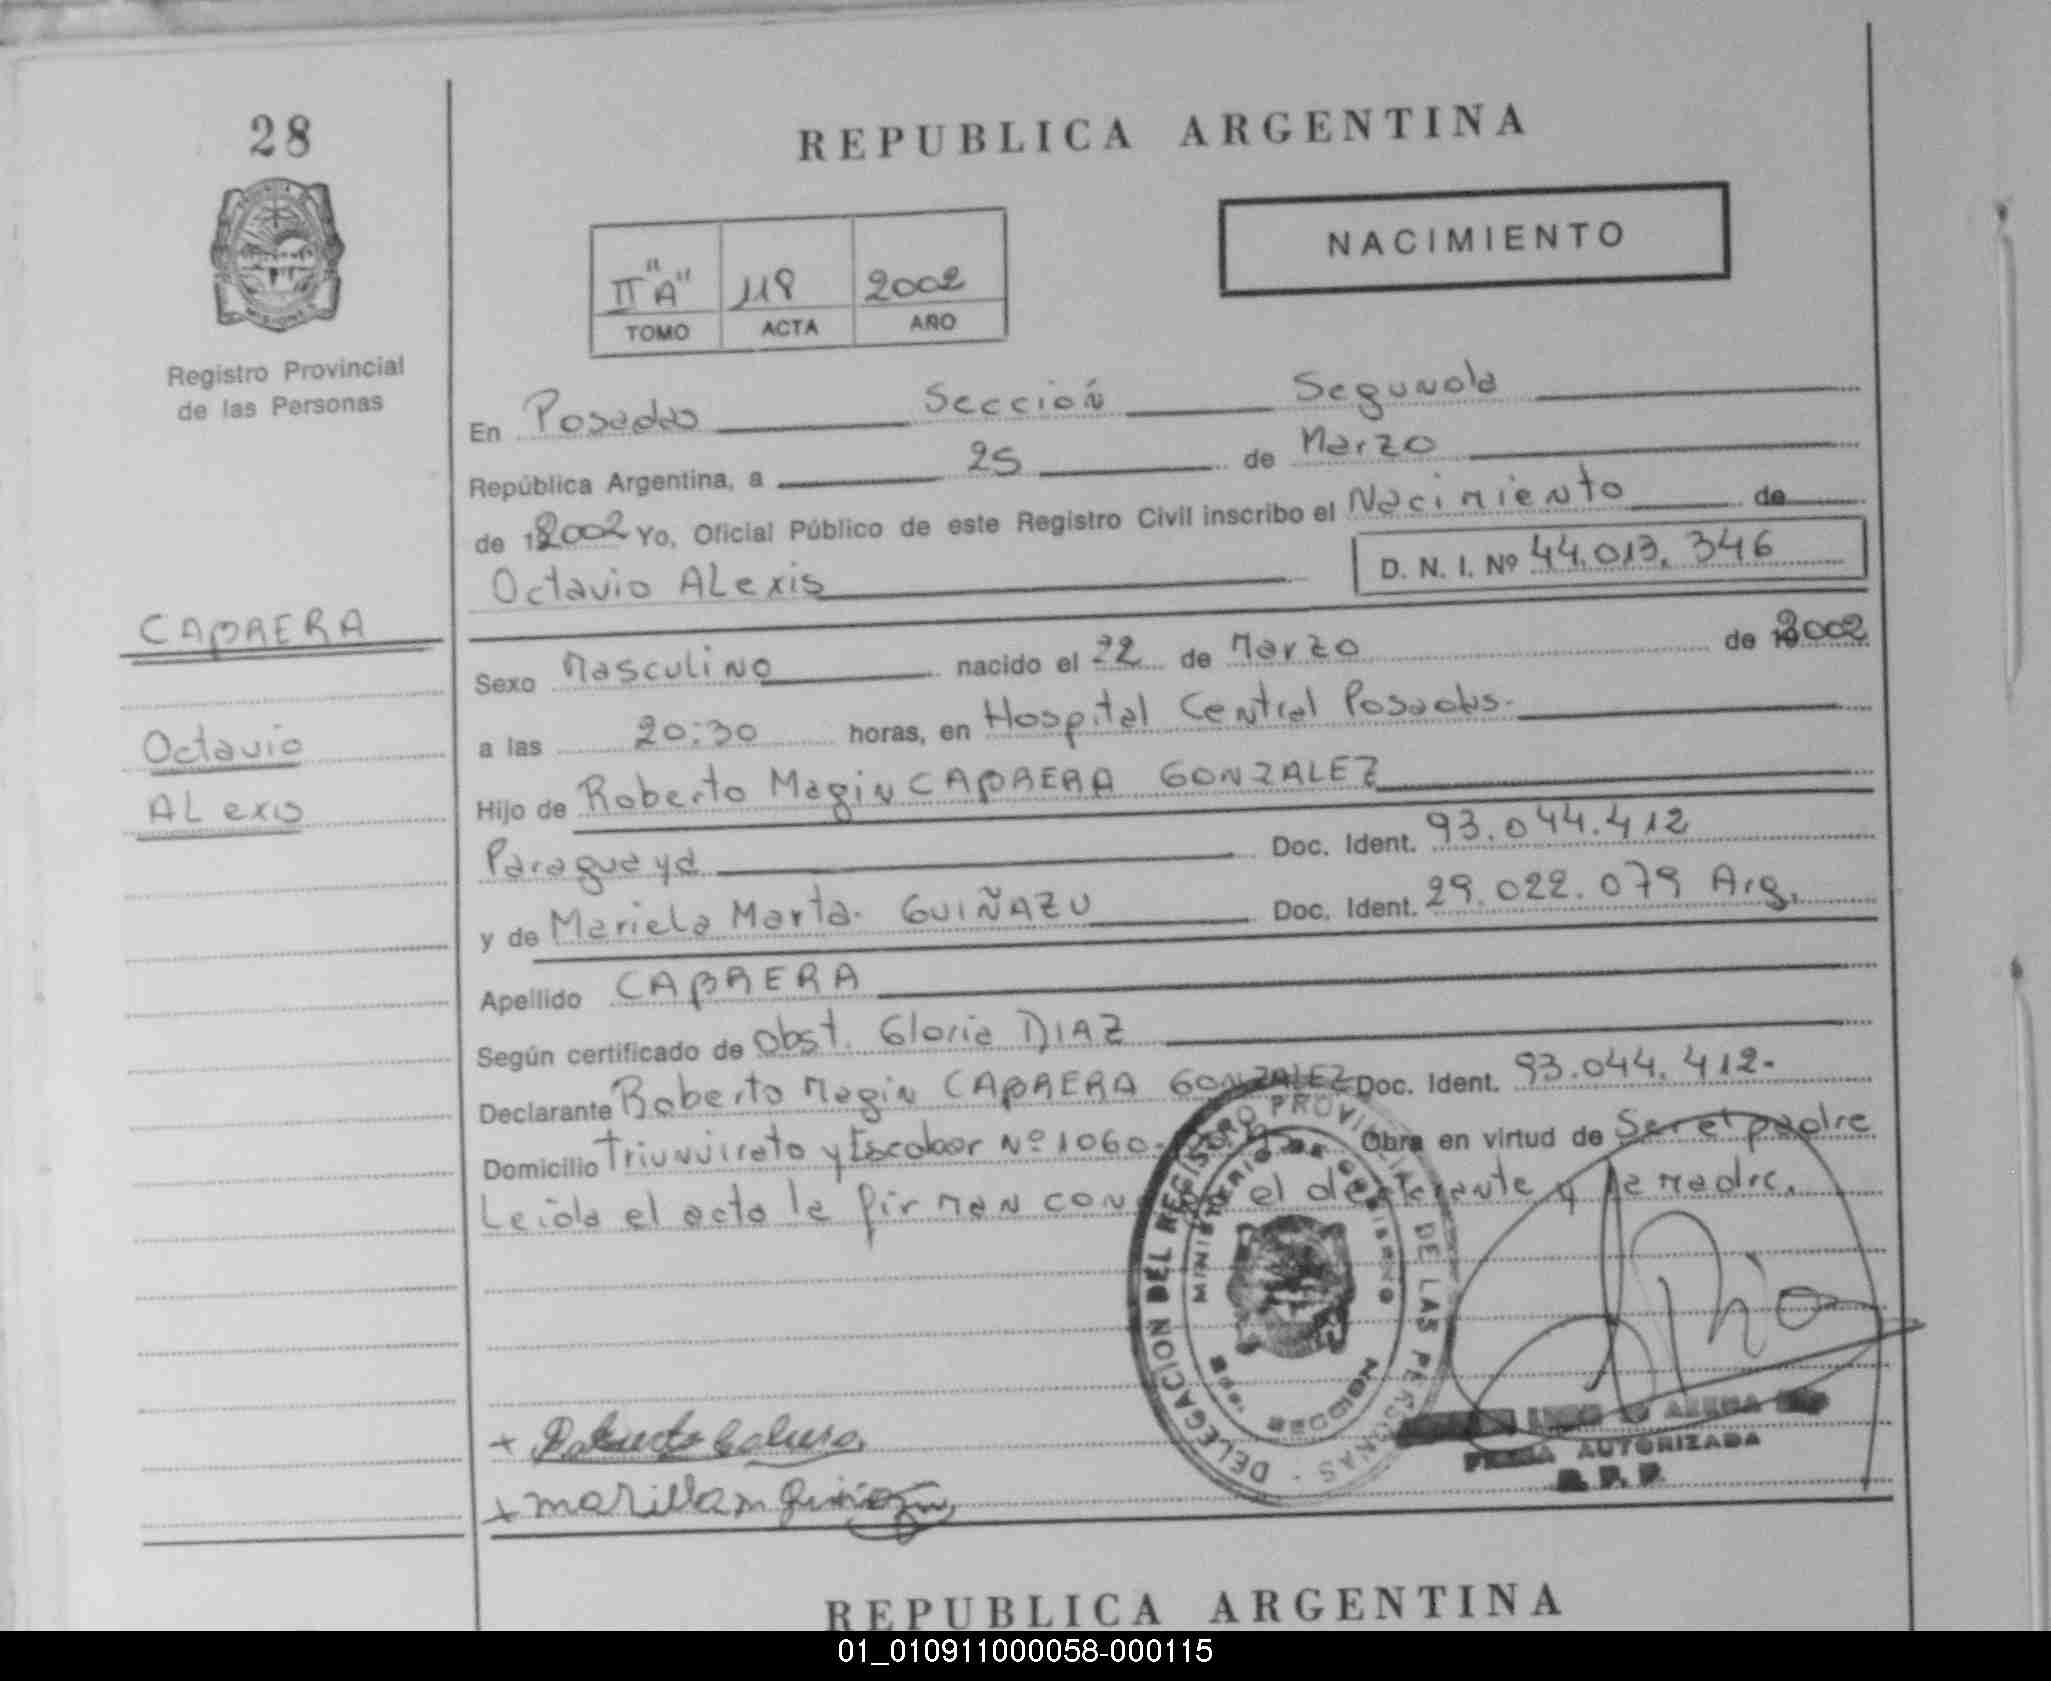 28
REPUBLICA ARGENTINA
NACIMIENTO
II "A" 118 2002
TOMO ACTA AÑO
Registro Provincial
de las Personas
En Posadas Sección Segunda
República Argentina, a 25 de Marzo
de 2002 Yo, Oficial Público de este Registro Civil inscribo el Nacimiento de
Octavio ALexis D. N. I. Nº 44.013.346
CABRERA
Octavio
ALexis
Sexo Masculino nacido el 22 de Marzo de 2002
a las 20:30 horas, en Hospital Central Posadas.
Hijo de Roberto Magin CABRERA GONZALEZ
Paraguaya Doc. Ident. 93.044.412
y de Mariela Marta. GUIÑAZU Doc. Ident. 29.022.079 Arg.
Apellido CABRERA
Según certificado de Obst. Gloria DIAZ
Declarante Roberto Magin CABRERA GONZALEZ Doc. Ident. 93.044.412.
Domicilio Triunvirato y Escobar Nº 1060. Obra en virtud de Ser el padre
Leida el acta la firman con el declarante y la madre.
DELEGACION DEL REGISTRO PROVINCIAL DE LAS PERSONAS
MINISTERIO DE GOBIERNO
MISIONES
FIRMA AUTORIZADA
R. P. P.
REPUBLICA ARGENTINA
01_010911000058-000115